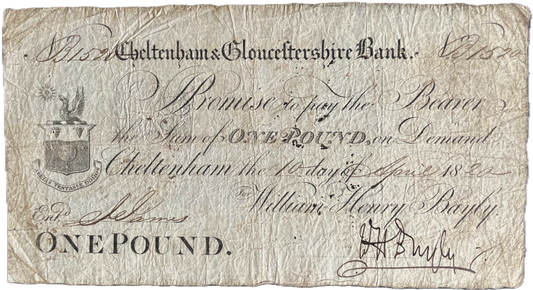 Cheltenham & Gloucestershire Bank.
I Promise to pay the Bearer
the Sum of ONE POUND, on Demand
Cheltenham the 10 day of April 182
For William Henry Bayly.
Entd. J James
ONE POUND.
WH Bayly